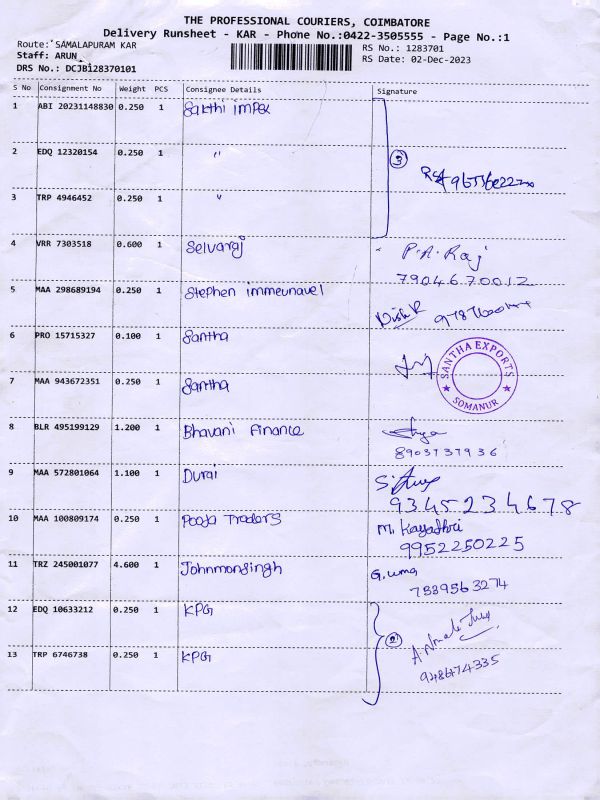 THE PROFESSIONAL COURIERS, COIMBATORE
Delivery Runsheet - KAR - Phone No.:0422-3505555 - Page No.:1
Route: SAMALAPURAM KAR
Staff: ARUN
DRS No.: DCJB128370101
RS No.: 1283701
RS Date: 02-Dec-2023
S No Consignment No Weight PCS Consignee Details Signature
1 ABI 20231148830 0.250 1 Sakthi impex
2 EDQ 12320154 0.250 1 "
3 TRP 4946452 0.250 1 "
3
4 VRR 7303518 0.600 1 Selvaraj P.A. Raj
7904670012
5 MAA 298689194 0.250 1 Stephen immeunavel
6 PRO 15715327 0.100 1 Santha
SANTHA EXPORTS
SOMANUR
7 MAA 943672351 0.250 1 Santha
8 BLR 495199129 1.200 1 Bhavani Finance
8903737936
9 MAA 572801064 1.100 1 Durai
9345234678
10 MAA 100809174 0.250 1 Pooja Traders M. Kayathri
9952250225
11 TRZ 245001077 4.600 1 Johnmonsingh G. uma
7339563274
12 EDQ 10633212 0.250 1 KPG
2
13 TRP 6746738 0.250 1 KPG
948674335